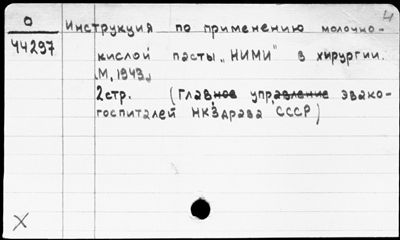 4
О Инструкция по применению молочно-
44297
кислой пасты „НИМИ" в хирургии.
М, 1943.
2стр. (Главное управление эвако-
госпиталей НКЗдрава СССР)
X